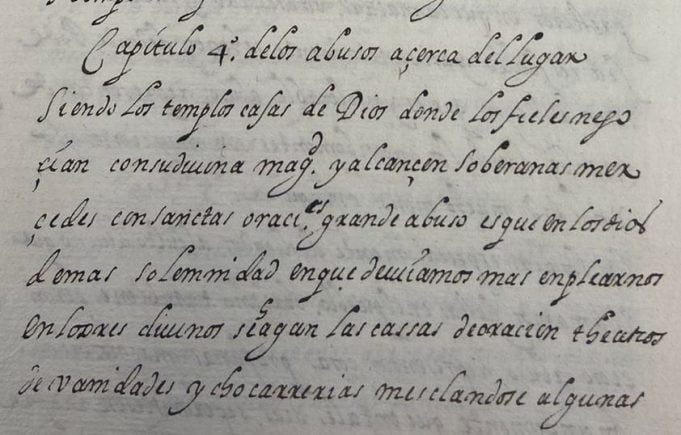 Capítulo 4º. delos abusos açerca del lugar
Siendo los templos casas de Dios donde los fieles nego
çian consudiuina magd. y alcançen soberanas mer
çedes consanctas oracies. grande abuso es que en los dias
de mas solemnidad enque deuiamos mas enplearnos
en loores diuinos se hagan las cassas de oracion theatros
de vanidades y chocarrerias mesclandose algunas